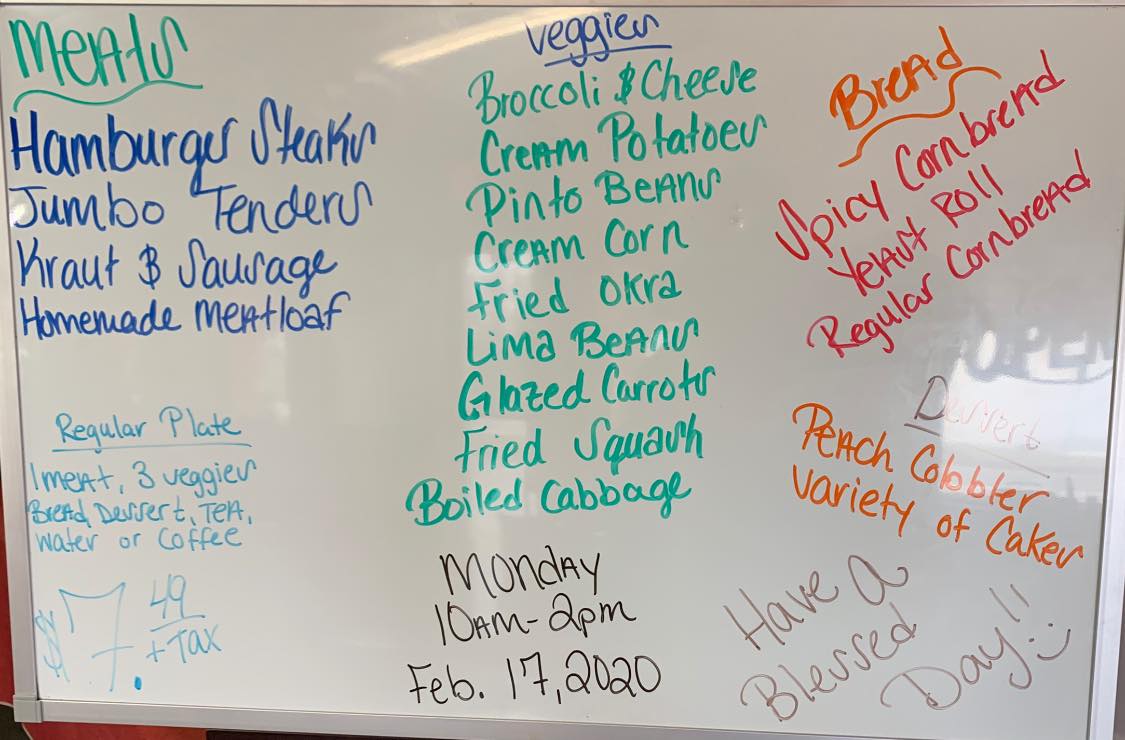 Meats
Hamburger Steaks
Jumbo Tenders
Kraut & Sausage
Homemade Meatloaf
Regular Plate
1 meat, 3 veggies
Bread, Dessert, Tea,
Water or Coffee
$7.49
+ Tax
Veggies
Broccoli & Cheese
Cream Potatoes
Pinto Beans
Cream Corn
Fried Okra
Lima Beans
Glazed Carrots
Fried Squash
Boiled Cabbage
Monday
10am-2pm
Feb. 17, 2020
Bread
Spicy Cornbread
Yeast Roll
Regular Cornbread
OPEN
Dessert
Peach Cobbler
Variety of Cakes
Have A
Blessed
Day!! :)